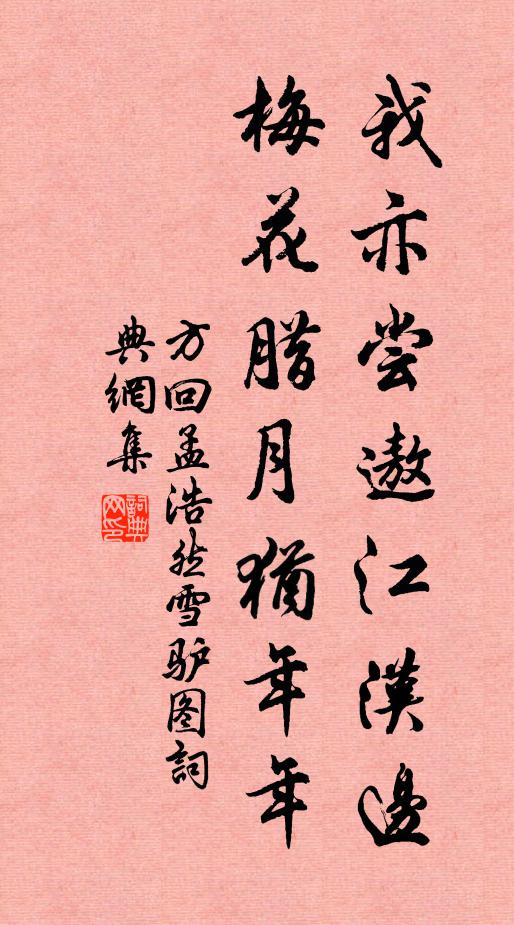 我亦尝遨江漢邊
梅花腊月猶年年
方回孟浩然雪驴图詞
典網集
詞典网印